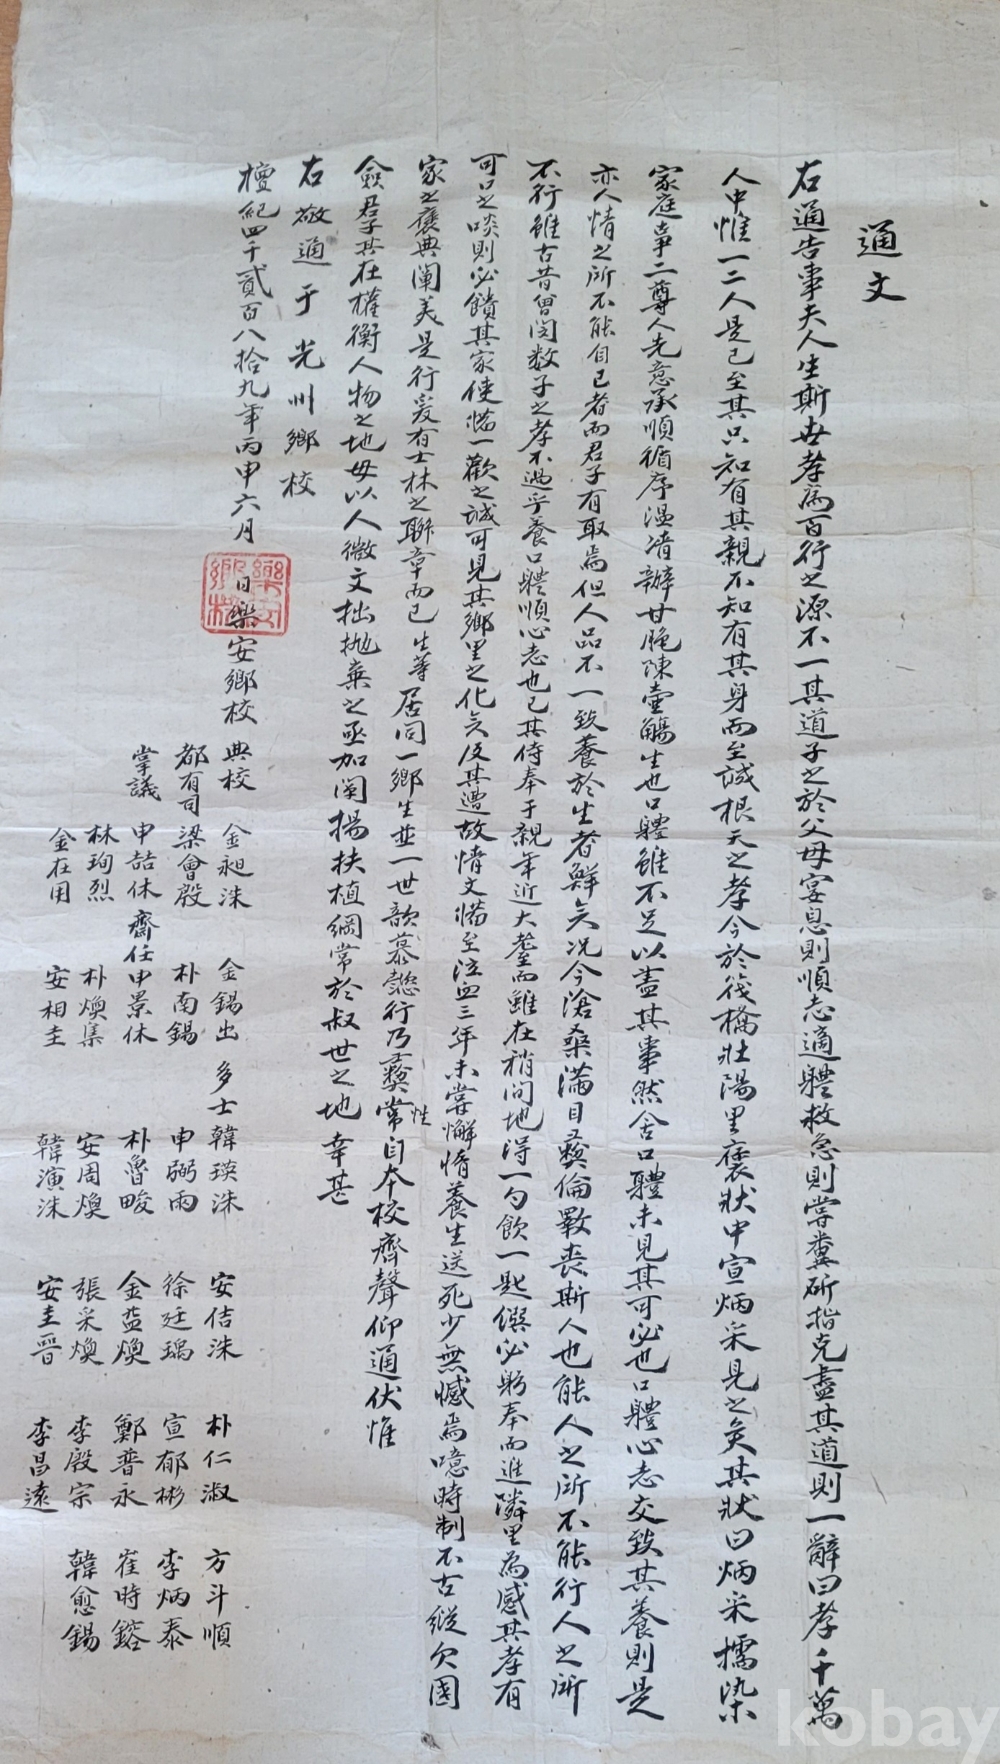 通文
右通告事夫人生斯世孝爲百行之源不一其道子之於父母宴息則順志適軆救急則嘗糞斫指克盡其道則一辭曰孝千萬
人中惟一二人是已至其只知有其親不知有其身而至誠根天之孝今於筏橋壯陽里褒狀中宣炳采見之矣其狀曰炳采擩染
家庭事二尊人先意承順循序溫凊辦甘脆陳壺觴生也口軆雖不足以盡其事然舍口軆未見其可必也口軆心志交致其養則是
亦人情之所不能自已者而君子有取焉但人品不一致養於生者鮮矣况今滄桑滿目彜倫斁喪斯人也能人之所不能行人之所
不行雖古昔曾閔数子之孝不過乎養口軆順心志也已其侍奉于親年近大耋而雖在稍間地得一勺飮一匙饌必躬奉而進隣里為感其孝有
可口之啖則必饋其家使備一歡之誠可見其鄕里之化矣及其遭故情文備至泣血三年未嘗懈惰養生送死少無憾焉噫時制不古縱欠國
家之褒典闡美是行爰有士林之聯章而已生等居同一鄕生並一世歆慕懿行乃彜常性自本校齊聲仰通伏惟
僉君子共在權衡人物之地毋以人微文拙抛棄之亟加闡揚扶植綱常於叔世之地幸甚
右敬通于光州鄕校
檀紀四千貳百八拾九年丙申六月 日樂安鄕校
典校 金昶洙 金錫出 多士 韓瑛洙 安佶洙 朴仁淑 方斗順
都有司 梁會殷 朴南錫 申弼雨 徐廷瑀 宣郁彬 李炳泰
掌議 申喆休 齋任 申景休 朴魯畯 金益煥 鄭普永 崔時鎔
林珣烈 朴煥集 安周煥 張采煥 李殷宗 韓愈錫
金在用 安相圭 韓演洙 安圭晋 李昌遠
樂安鄕校
kobay